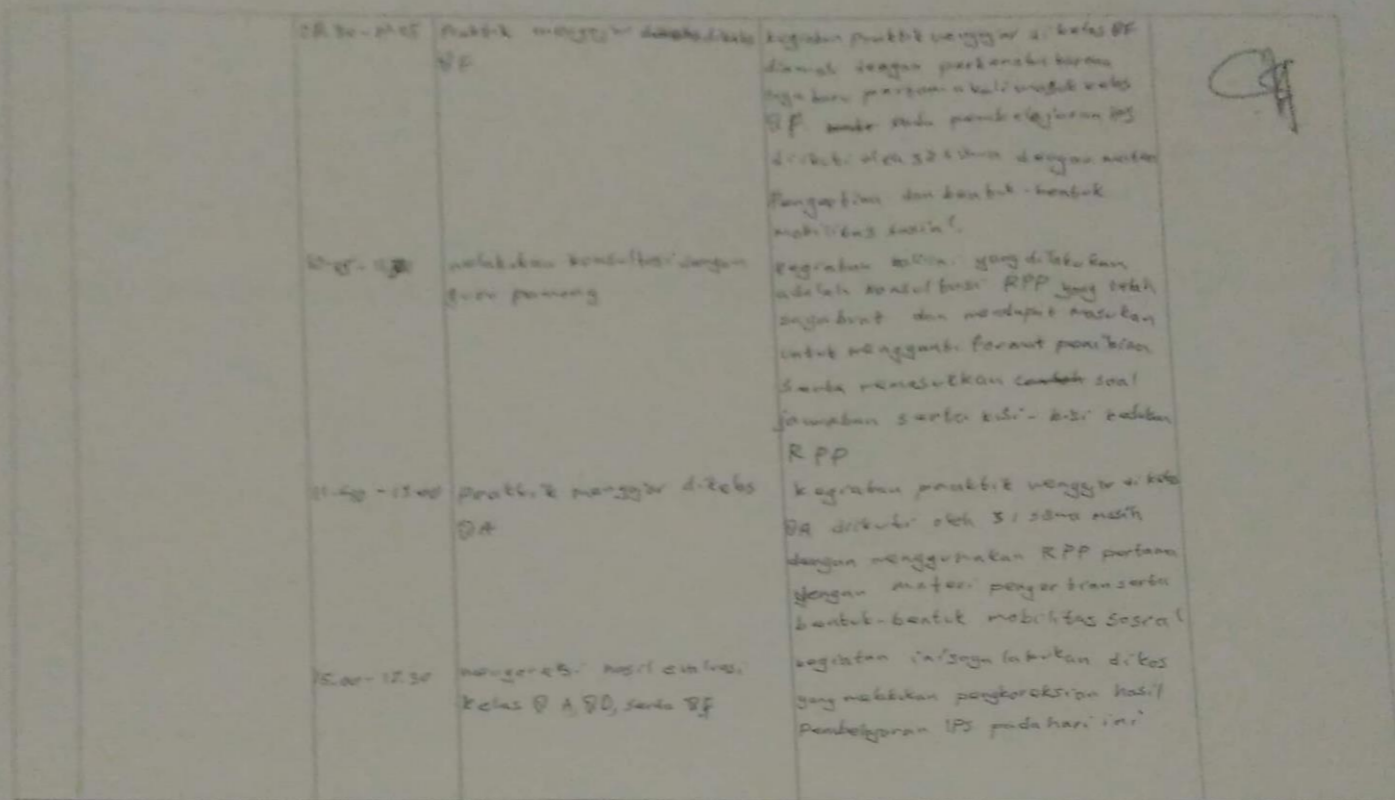 Praktik mengajar dikelas
8F
kegiatan praktik mengajar di kelas 8F
diawali dengan perkenalan karena
saya baru pertama kali masuk kelas
8F pembelajaran IPS
diikuti oleh 32 siswa dengan materi
Pengertian dan bentuk-bentuk
mobilitas sosial.
melakukan konsultasi dengan
guru pamong
kegiatan yang dilakukan
adalah konsultasi RPP yang telah
saya buat dan mendapat masukan
untuk mengganti format penilaian
Serta memasukkan soal
jawaban serta kisi-kisi kedalam
RPP
praktik mengajar dikelas
8A
kegiatan praktik mengajar di kelas
8A diikuti oleh 31 siswa masih
dengan menggunakan RPP pertama
dengan materi pengertian serta
bentuk-bentuk mobilitas sosial
mengoreksi hasil evaluasi
kelas 8A, 8D, serta 8F
kegiatan ini saya lakukan dikos
yang melakukan pengkoreksian hasil
Pembelajaran IPS pada hari ini